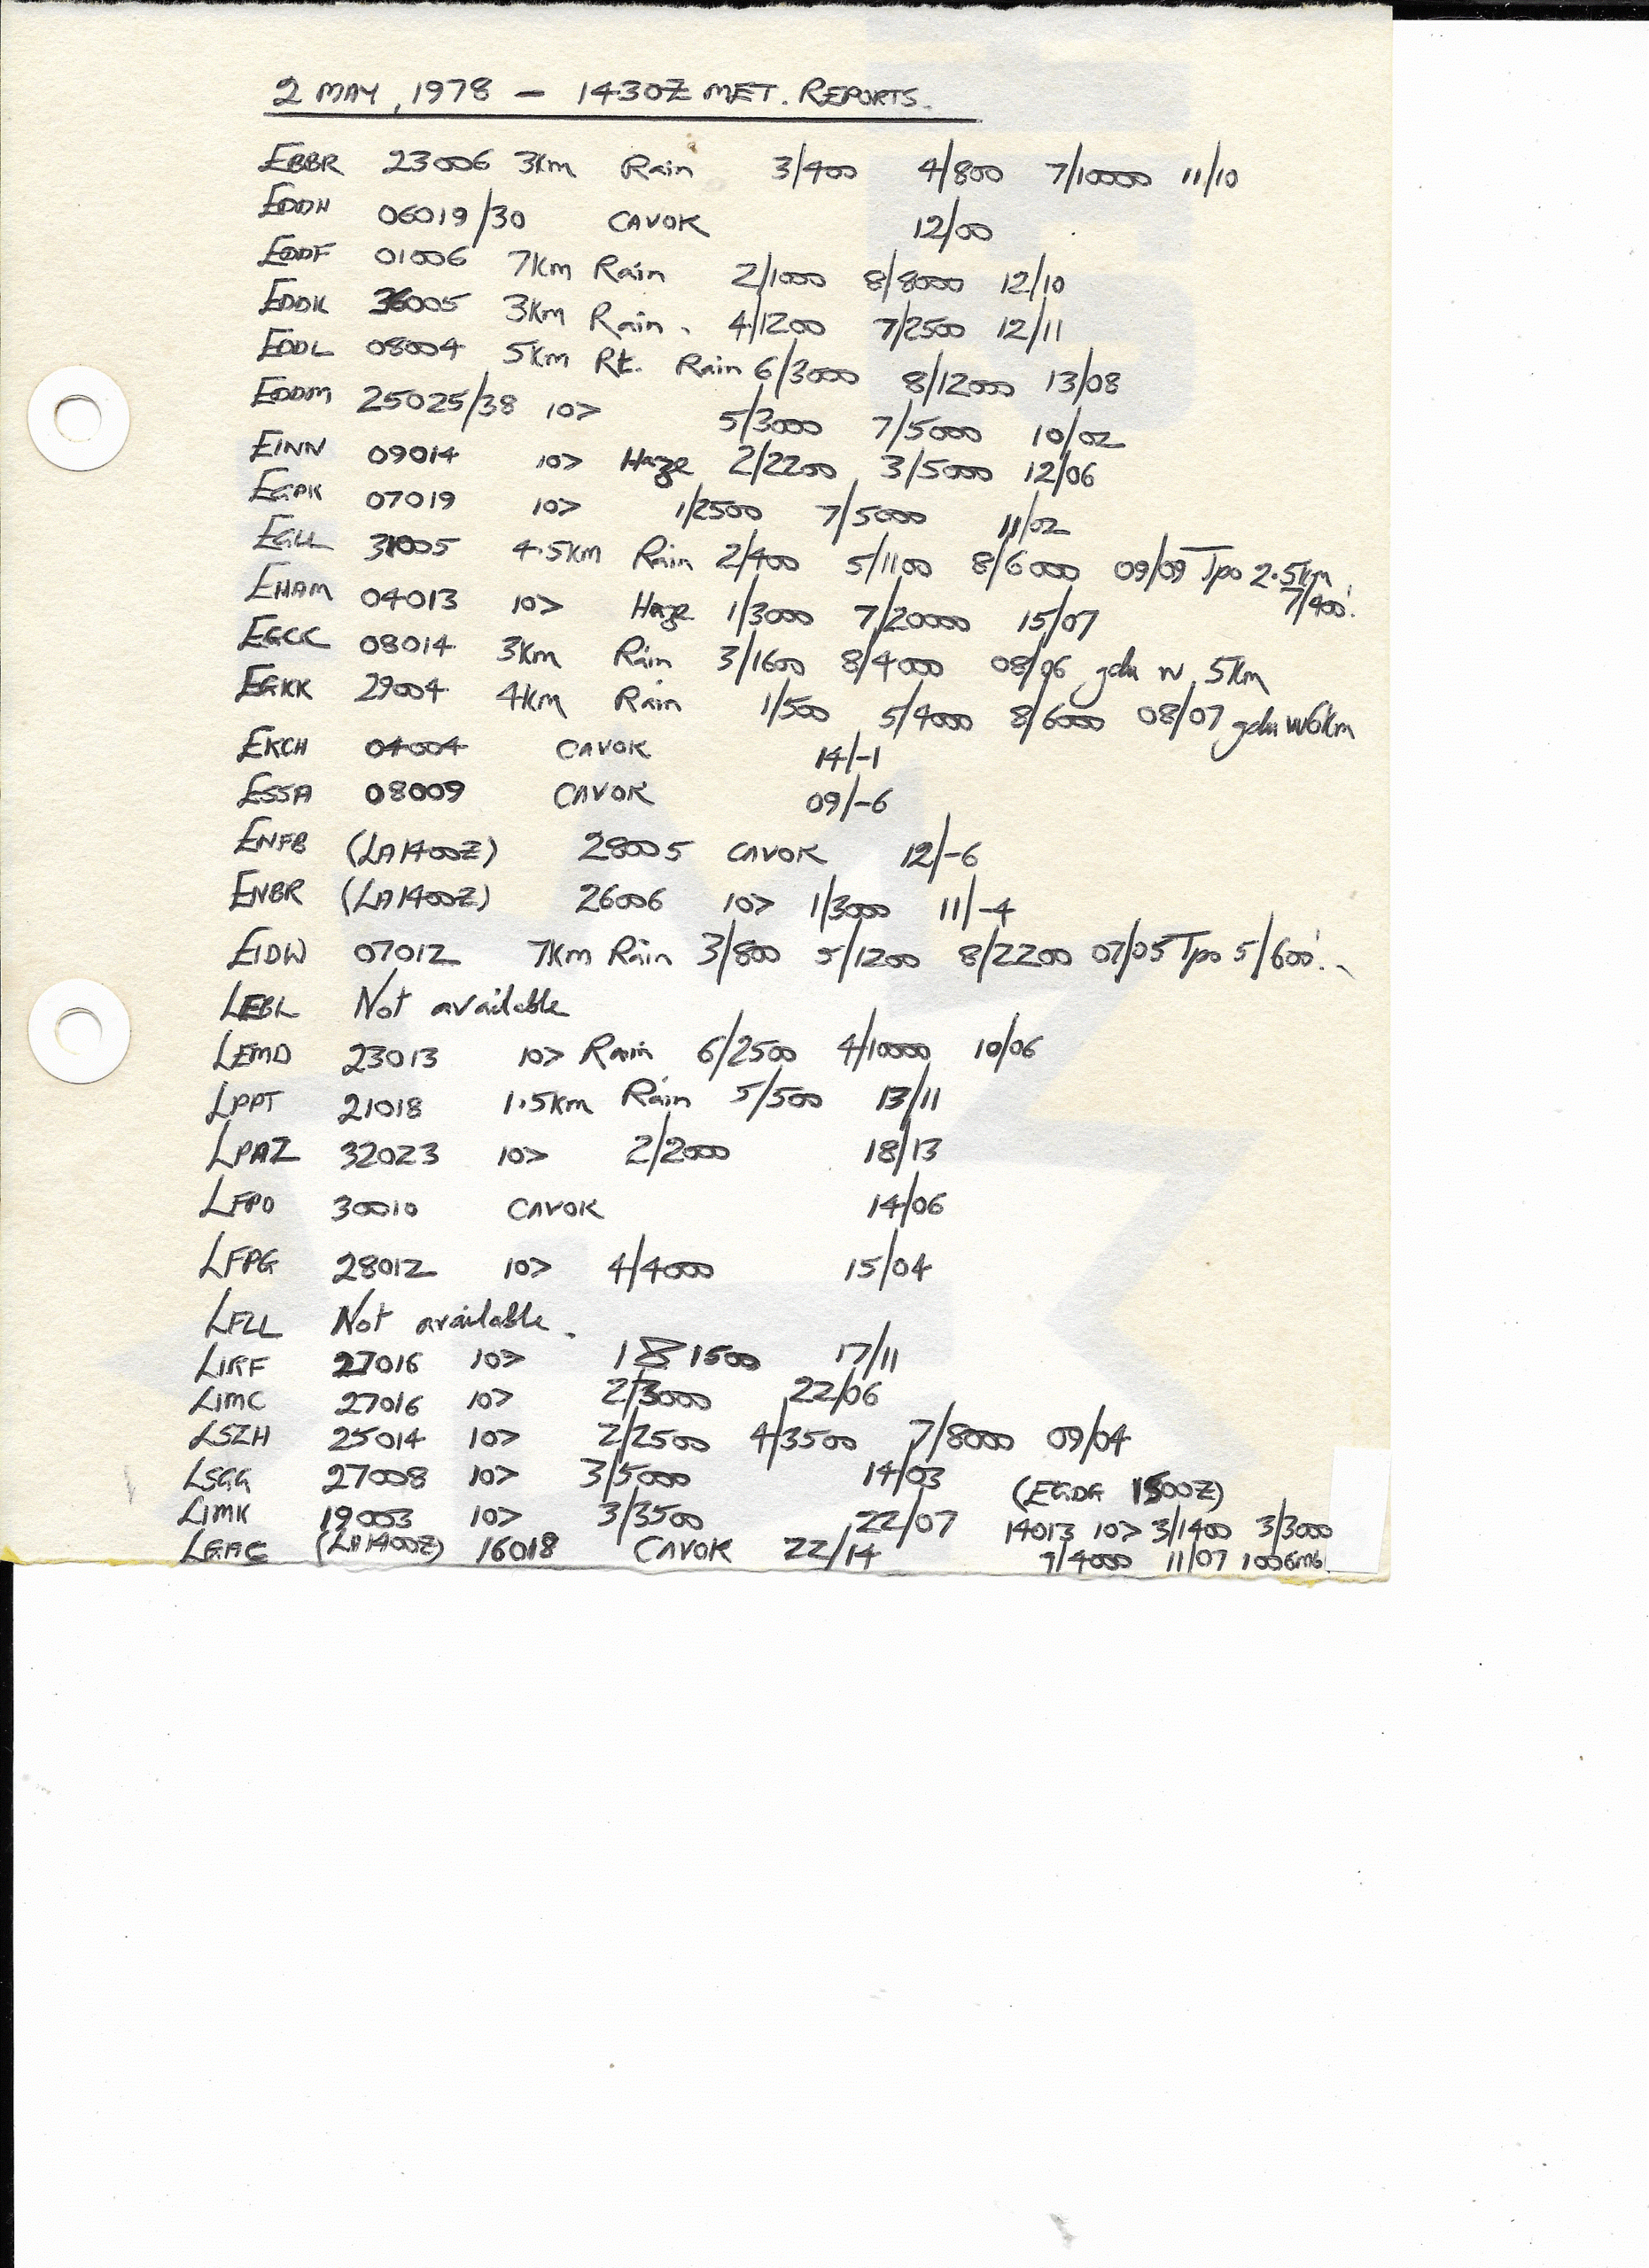 2 MAY, 1978 – 1430Z MET. REPORTS.
EBBR 23006 3Km Rain 3/400 4/800 7/10000 11/10
EDDH 06019/30 CAVOK 12/00
EDDF 01006 7Km Rain 2/1000 8/8000 12/10
EDDK 36005 3Km Rain. 4/1200 7/2500 12/11
EDDL 08004 5Km Rt. Rain 6/3000 8/12000 13/08
EDDM 25025/38 10> 5/3000 7/5000 10/02
EINN 09014 10> Haze 2/2200 3/5000 12/06
EGPK 07019 10> 1/2500 7/5000 11/02
EGLL 31005 4.5Km Rain 2/400 5/1100 8/6000 09/09 Tpo 2.5Km
7/400'.
EHAM 04013 10> Haze 1/3000 7/20000 15/07
EGCC 08014 3Km Rain 3/1600 8/4000 08/06 gdu w 5Km
EGKK 29004 4Km Rain 1/500 5/4000 8/6000 08/07 gdu w 6Km
EKCH 04004 CAVOK 14/-1
ESSA 08009 CAVOK 09/-6
ENFB (LA1400Z) 28005 CAVOK 12/-6
ENBR (LA1400Z) 26006 10> 1/3000 11/-4
EIDW 07012 7Km Rain 3/800 5/1200 8/2200 07/05 Tpo 5/600'.
LEBL Not available
LEMD 23013 10> Rain 6/2500 4/10000 10/06
LPPT 21018 1.5Km Rain 5/500 13/11
LPAZ 32023 10> 2/2000 18/13
LFPO 30010 CAVOK 14/06
LFPG 28012 10> 4/4000 15/04
LFLL Not available.
LIRF 27016 10> 1 1500 17/11
LIMC 27016 10> 2/3000 22/06
LSZH 25014 10> 2/2500 4/3500 7/8000 09/04
LSGG 27008 10> 3/5000 14/03 (EGDG 1500Z)
LIMK 19003 10> 3/3500 22/07 14013 10> 3/1400 3/3000
LGAC (LA1400Z) 16018 CAVOK 22/14 7/4000 11/07 1006mb.